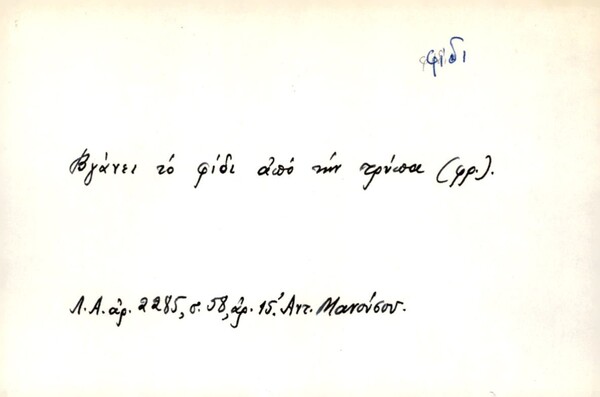 φίδι
Βγάνει τό φίδι ἀπό τήν τρύπα (φρ.).
Λ.Α. ἀρ. 2285, σ. 58, ἀρ. 15. Ἀντ. Μανούσου.